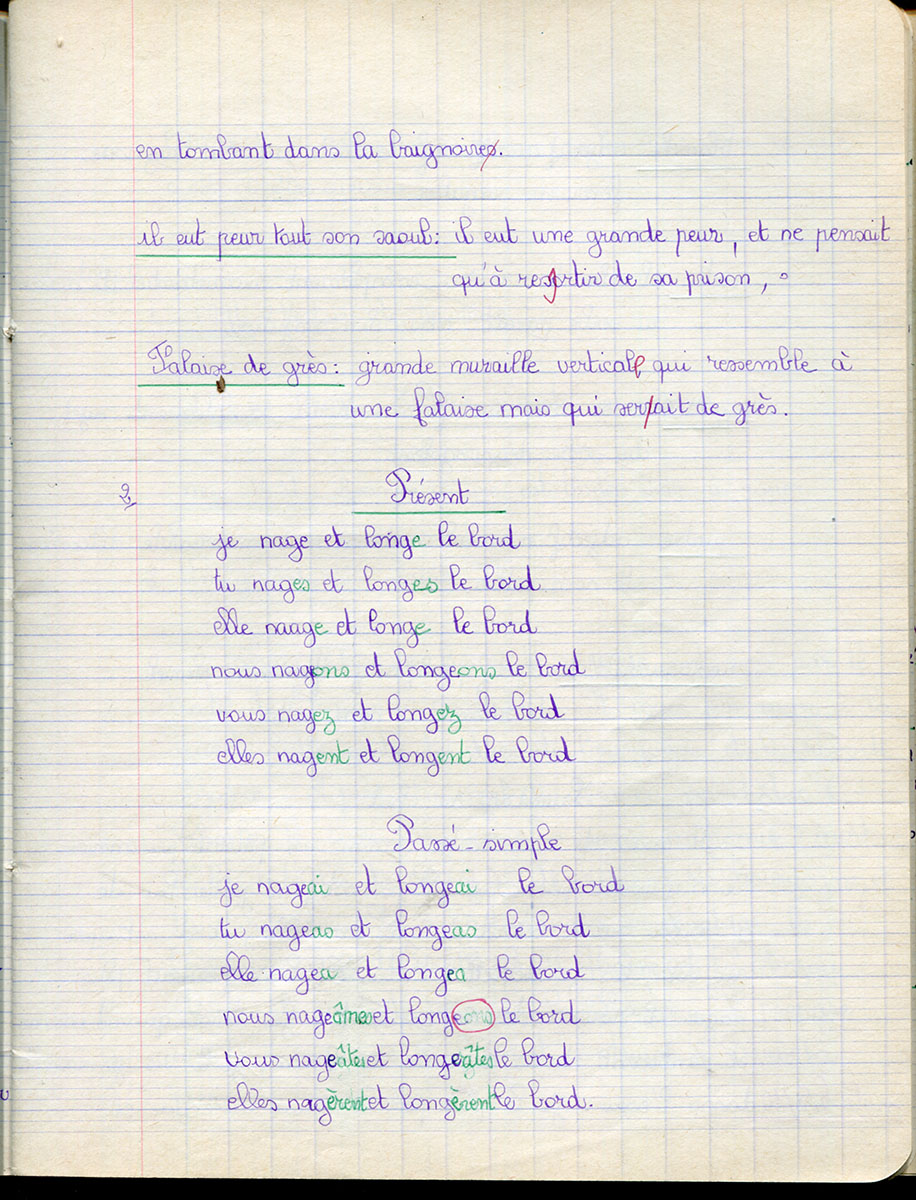 en tombant dans la baignoire.
il eut peur tout son saoul: il eut une grande peur, et ne pensait
qu'à resortir de sa prison,
Falaise de grès: grande muraille vertical qui ressemble à
une falaise mais qui serait de grès.
2
Présent
je nage et longe le bord
tu nages et longes le bord
elle naage et longe le bord
nous nagons et longeons le bord
vous nagez et longez le bord
elles nagent et longent le bord
Passé-simple
je nageai et longeai le bord
tu nageas et longeas le bord
elle nagea et longea le bord
nous nageâmes et longeons le bord
vous nageâtes et longeâtes le bord
elles nagèrent et longèrent le bord.